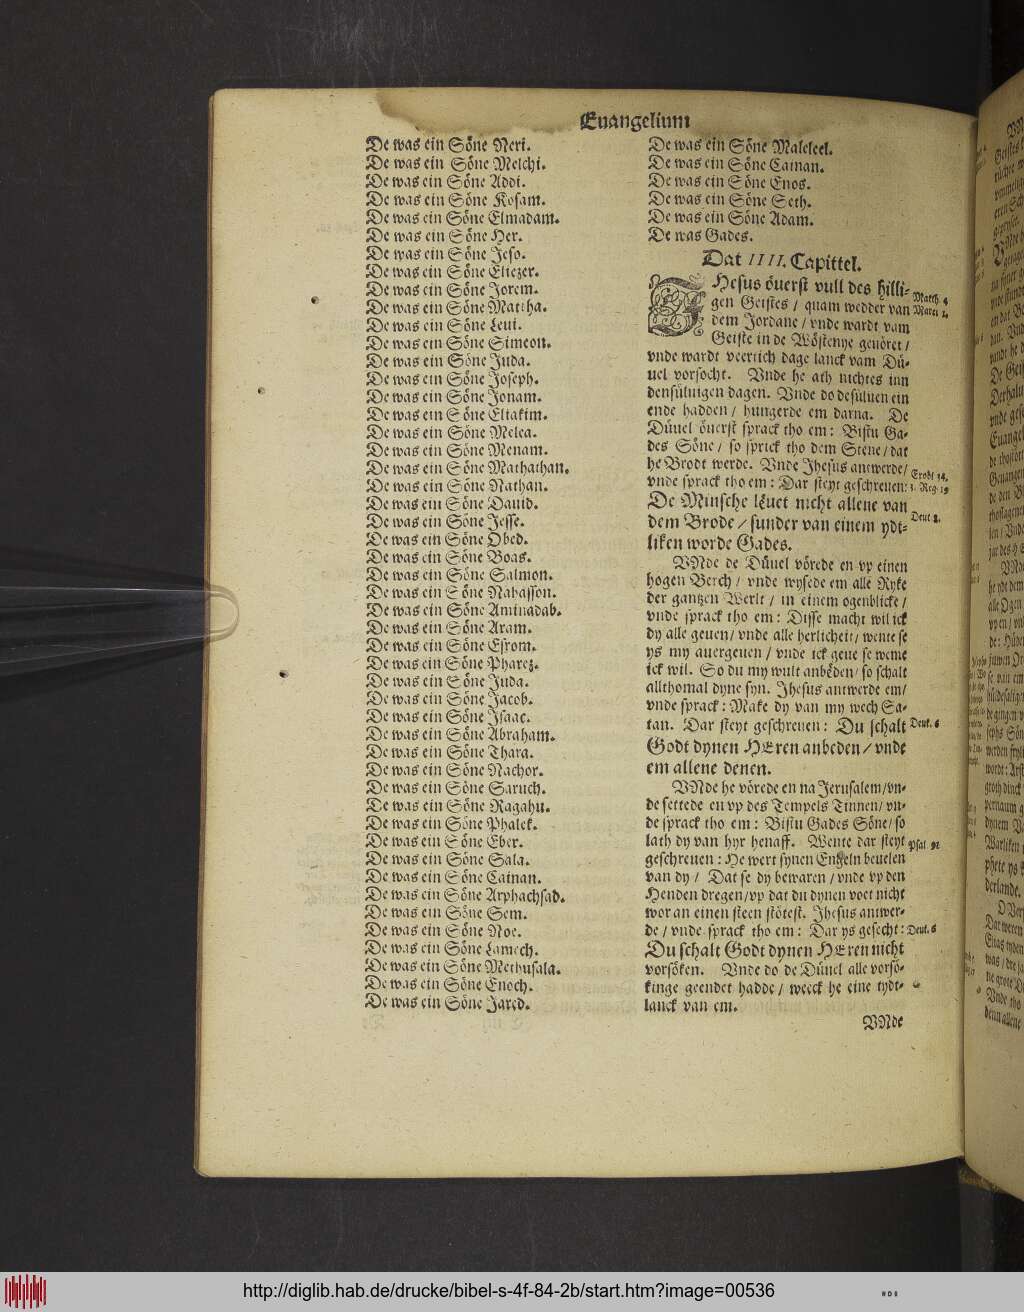 Euangelium
De was ein Söne Neri.
De was ein Söne Melchi.
De was ein Söne Addi.
De was ein Söne Kosam.
De was ein Söne Elmadam.
De was ein Söne Her.
De was ein Söne Jeso.
De was ein Söne Eliezer.
De was ein Söne Jorem.
De was ein Söne Mattha.
De was ein Söne Leui.
De was ein Söne Simeon.
De was ein Söne Juda.
De was ein Söne Joseph.
De was ein Söne Jonam.
De was ein Söne Eliakim.
De was ein Söne Melea.
De was ein Söne Menam.
De was ein Söne Mathathan.
De was ein Söne Nathan.
De was ein Söne Dauid.
De was ein Söne Jesse.
De was ein Söne Obed.
De was ein Söne Boas.
De was ein Söne Salmon.
De was ein Söne Nahasson.
De was ein Söne Aminadab.
De was ein Söne Aram.
De was ein Söne Esrom.
De was ein Söne Pharez.
De was ein Söne Juda.
De was ein Söne Jacob.
De was ein Söne Isaac.
De was ein Söne Abraham.
De was ein Söne Thara.
De was ein Söne Nachor.
De was ein Söne Saruch.
De was ein Söne Ragahu.
De was ein Söne Phalek.
De was ein Söne Eber.
De was ein Söne Sala.
De was ein Söne Cainan.
De was ein Söne Arphachsad.
De was ein Söne Sem.
De was ein Söne Noe.
De was ein Söne Lamech.
De was ein Söne Methusala.
De was ein Söne Enoch.
De was ein Söne Jared.
De was ein Söne Maleleel.
De was ein Söne Cainan.
De was ein Söne Enos.
De was ein Söne Seth.
De was ein Söne Adam.
De was Gades.
Dat IIII. Capittel.
JHesus öuerst vull des hilli-
gen Geistes / quam wedder van
dem Jordane / vnde wardt vam
Geiste in de Wöstenye geuöret /
vnde wardt veertich dage lanck vam Dü-
uel vorsocht. Vnde he ath nichtes inn
densüluigen dagen. Vnde do desüluen ein
ende hadden / hungerde em darna. De
Düuel öuerst sprack tho em: Bistu Ga-
des Söne / so sprick tho dem Stene / dat
he Brodt werde. Vnde Jhesus antwerde /
vnde sprack tho em: Dar steyt geschreuen:
De Minsche leuet nicht allene van
dem Brode / sunder van einem ydt-
liken worde Gades.
VNde de Düuel vörede en vp einen
hogen Berch / vnde wysede em alle Ryke
der gantzen Werlt / in einem ogenblicke /
vnde sprack tho em: Disse macht wil ick
dy alle geuen / vnde alle herlicheit / wente se
ys my auergeuen / vnde ick geue se weme
ick wil. So du my wult anbeden / so schalt
allthomal dyne syn. Jhesus antwerde em /
vnde sprack: Make dy van my wech Sa-
tan. Dar steyt geschreuen: Du schalt
Godt dynen HEren anbeden / vnde
em allene denen.
VNde he vörede en na Jerusalem / vn-
de settede en vp des Tempels Tinnen / vn-
de sprack tho em: Bistu Gades Söne / so
lath dy van hyr henaff. Wente dar steyt
geschreuen: He wert synen Engeln beuelen
van dy / Dat se dy bewaren / vnde vp den
Henden dregen / vp dat du dynen voet nicht
wor an einen steen stötest. Jhesus antwer-
de / vnde sprack tho em: Dar ys gesecht:
Du schalt Godt dynen HEren nicht
vorsöken. Vnde do de Düuel alle vorsö-
kinge geendet hadde / weeck he eine tydt-
lanck van em.
VNde
Matth 4
Marci 1.
Exodi 14.
3. Reg. 19
Deut 8.
Deut. 6
Psal 91
Deut. 6
http://diglib.hab.de/drucke/bibel-s-4f-84-2b/start.htm?image=00536